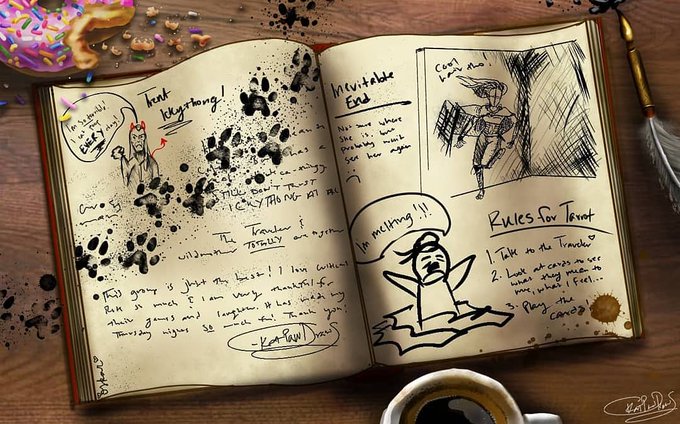 Trent
Ickythong!
EVERY
DON'T TRUST
ICKYTHONG AT ALL
The Traveler &
wildmother TOTALLY are together
This group is just the best! I love Critical
Role so much & I am very thankful for
their games and laughter. It has made my
Thursday nights so much fun! Thank you!
-KatiPawDraws
Oskar
Inevitable
End
Not sure where
she is, but
probably won't
see her again
:(
Cool
hair tho!
I'm melting!!!
Rules for Tarrot
1. Talk to the Traveler
2. Look at cards to see
what they mean to
me, what I feel...
3. Play the
cards
KatiPawDraws